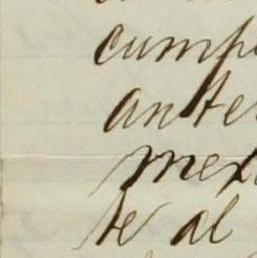 cump
ante
mex
te al